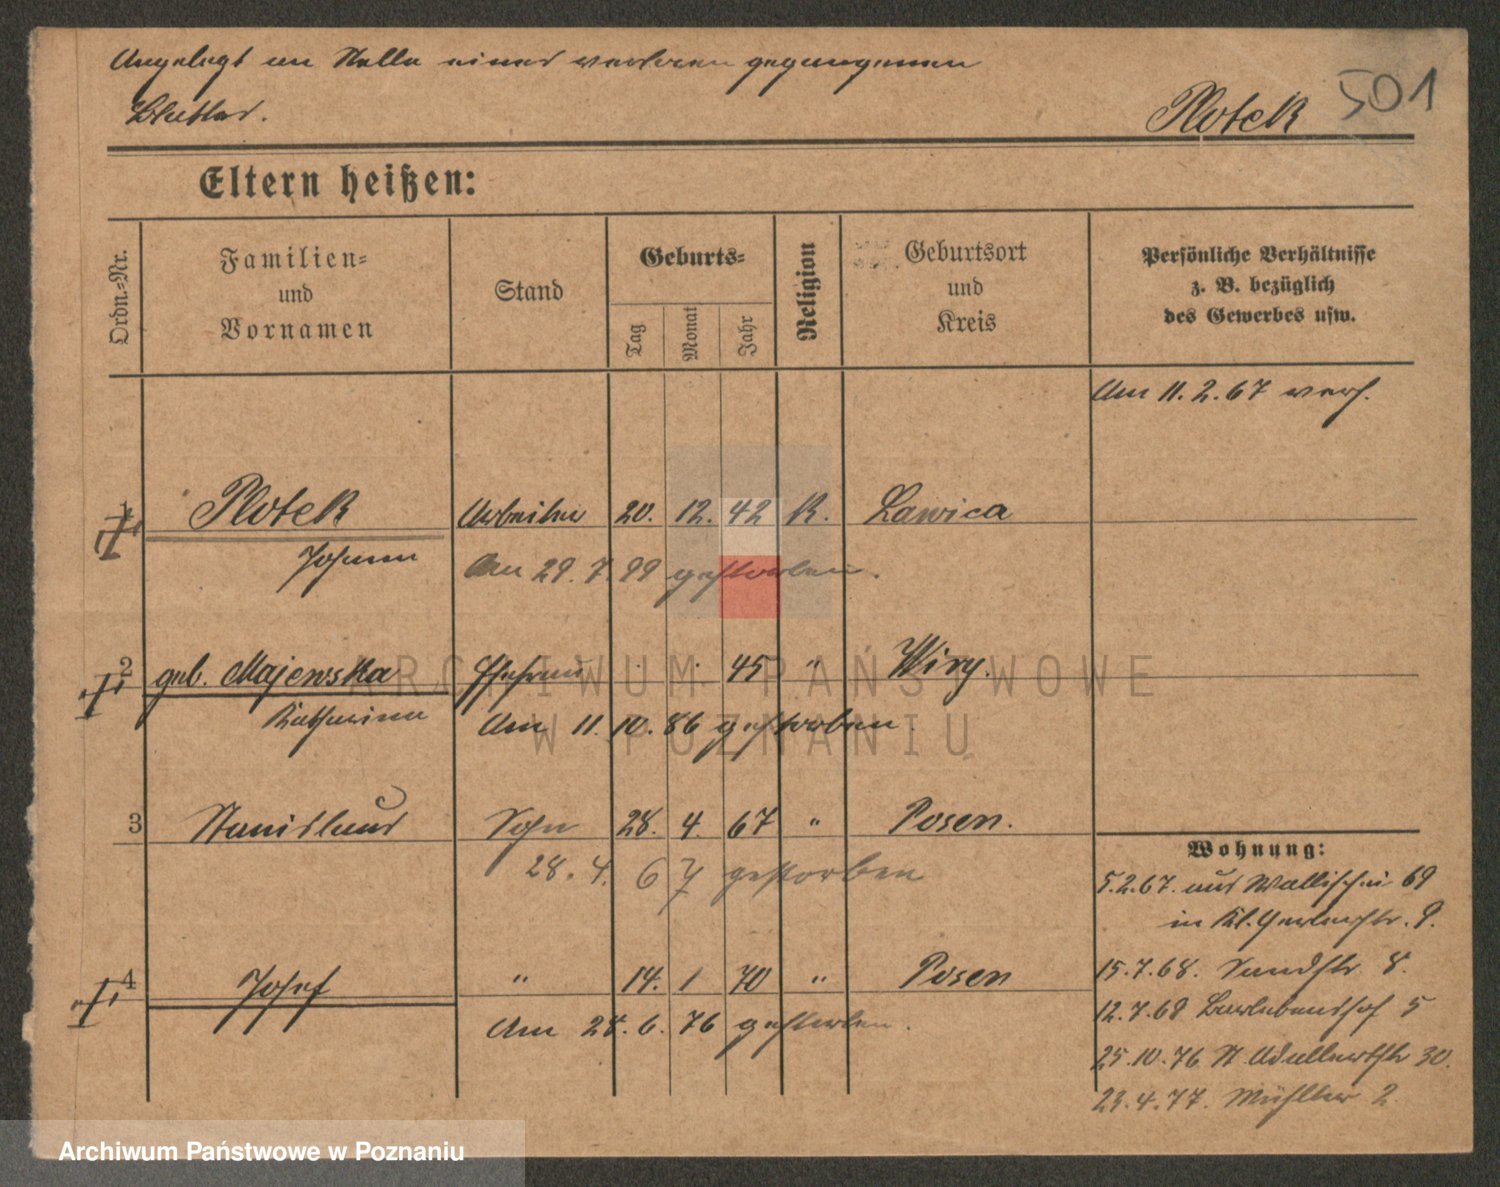 Angelegt an Stelle eines verloren gegangenen
Blattes.
Plotek 501
Eltern heißen:
Ordn.-Nr.
Familien-
und
Vornamen
Stand
Geburts-
Tag
Monat
Jahr
Religion
Geburtsort
und
Kreis
Persönliche Verhältnisse
z. B. bezüglich
des Gewerbes usw.
Am 11. 2. 67 verh.
1 Plotek Arbeiter 20. 12. 42 K. Lawica
Johann Am 29. 7. 99 gestorben.
2 geb. Majewska Ehefrau . . 45 " Wiry.
Katharina Am 11. 10. 86 gestorben.
3 Stanislaus Sohn 28. 4. 67 " Posen.
28. 4. 67 gestorben
4 Josef " 14. 1 70 " Posen
Am 28. 6. 76 gestorben.
Wohnung:
5.2.67. aus Wallischei 69
in Kl. Gerberstr. 9.
15.7.68. Sandstr 8.
12.7.69 5
25.10.76 St Adalbertstr 30.
23.4.77. 2
ARCHIWUM PAŃSTWOWE
W POZNANIU
Archiwum Państwowe w Poznaniu